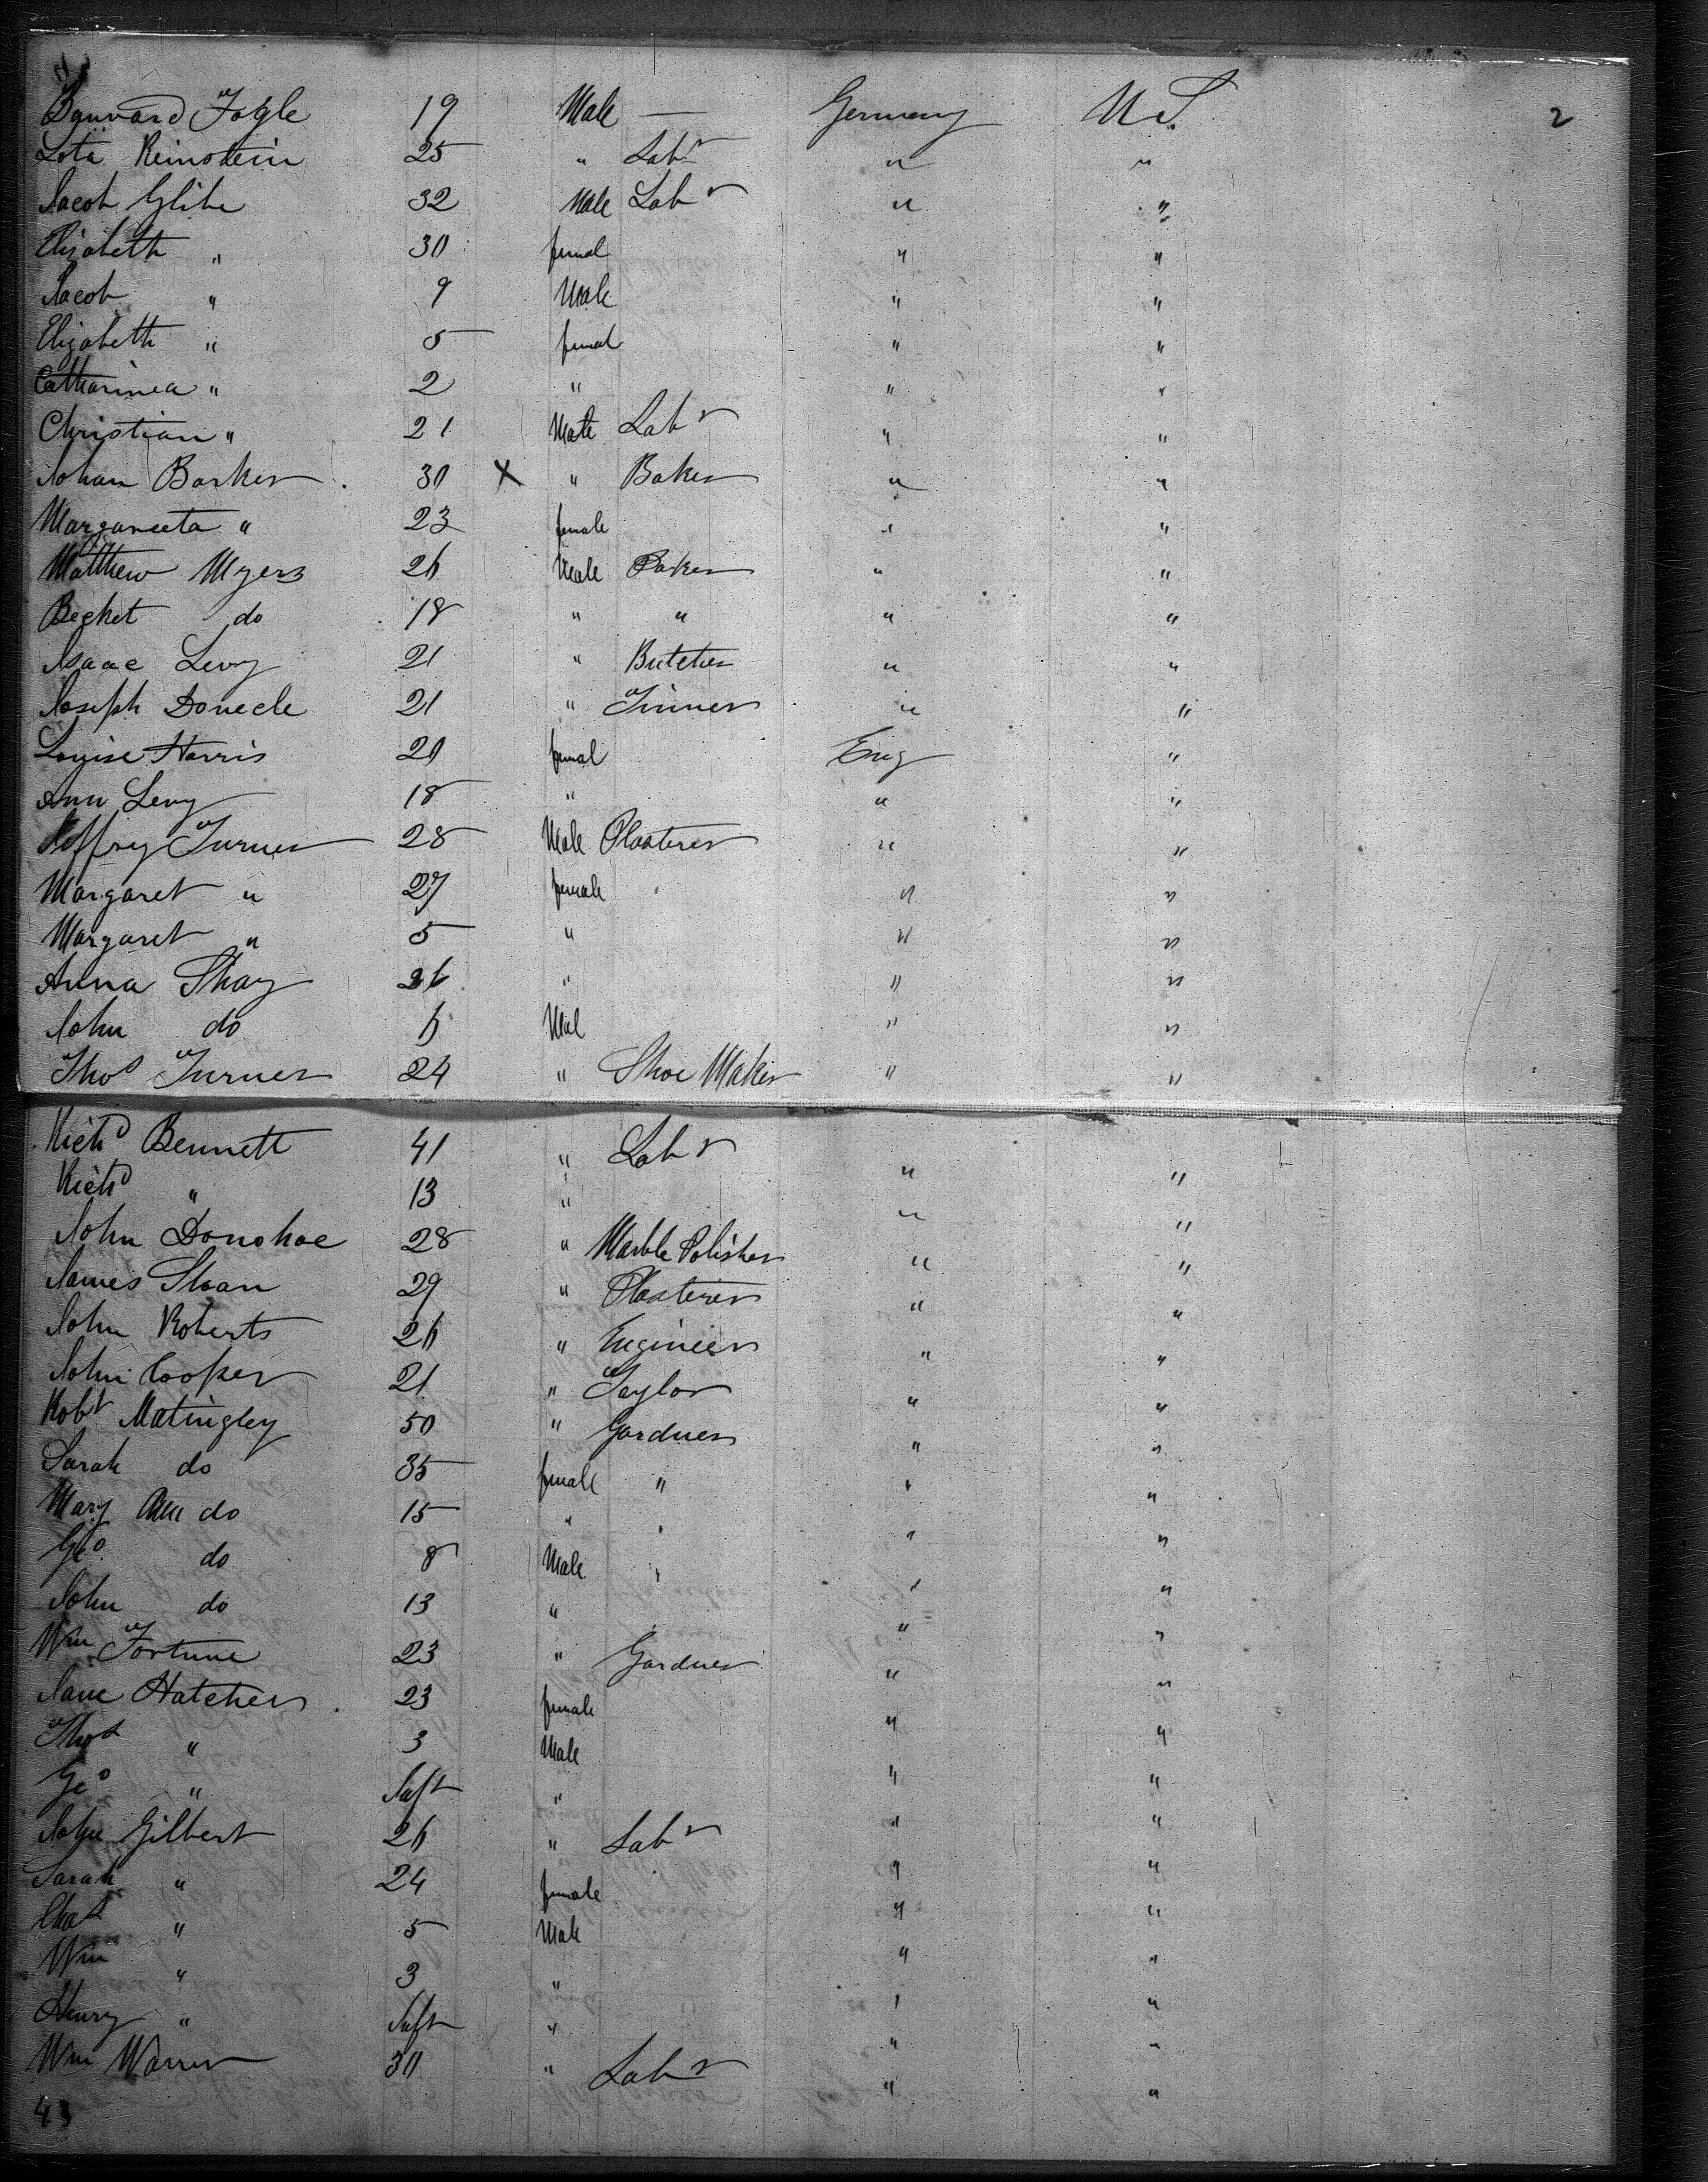 Bernard Fogle 19 Male — Germany U S. 2
Lota Reinstein 25 " Labr " "
Jacob Glibe 32 Male Labr " "
Elizabeth " 30 femal " "
Jacob " 9 Male " "
Elizabeth " 5 femal " "
Catharinea " 2 " " "
Christian " 21 Male Labr " "
Johan Barker 30 X " Baker " "
Margareeta " 23 female " "
Matthew Myers 26 Male Baker " "
Becket do 18 " " " "
Isaac Levy 21 " Butcher " "
Joseph Donecle 21 " Tinner " "
Louise Harris 20 femal Eng "
Ann Levy 18 " " "
Jeffrey Turner 28 Male Plasterer " "
Margaret " 27 female " "
Margaret " 5 " " "
Anna Shay 26 " " "
John do 6 Mal " "
Thos Turner 24 " Shoe Maker " "
Richd Bennett 41 " Labr " "
Richd " 13 " " "
John Donohoe 28 " Marble Polisher " "
James Sloan 29 " Plasterer " "
John Roberts 26 " Engineer " "
John Cooper 21 " Taylor " "
Robt Matingley 50 " Gardner " "
Sarah do 35 female " " "
Mary Ann do 15 " " " "
Geo do 8 Male " " "
John do 13 " " "
Wm Fortune 23 " Gardner " "
Jane Hatcher 23 female " "
Thos " 3 Male " "
Geo " Inft " " "
John Gilbert 26 " Labr " "
Sarah " 24 female " "
Chas " 5 Male " "
Wm " 3 " " "
Henry " Inft " " "
Wm Warner 30 " Labr " "
43